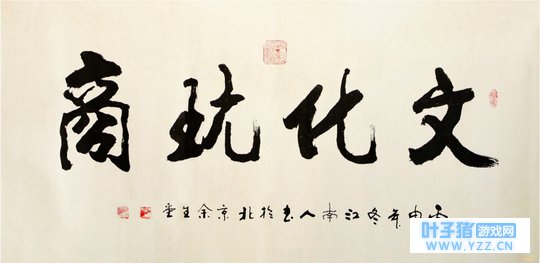 文化玩商
丙申年冬江南人书於北京余生堂
叶子猪游戏网
www.YZZ.CN